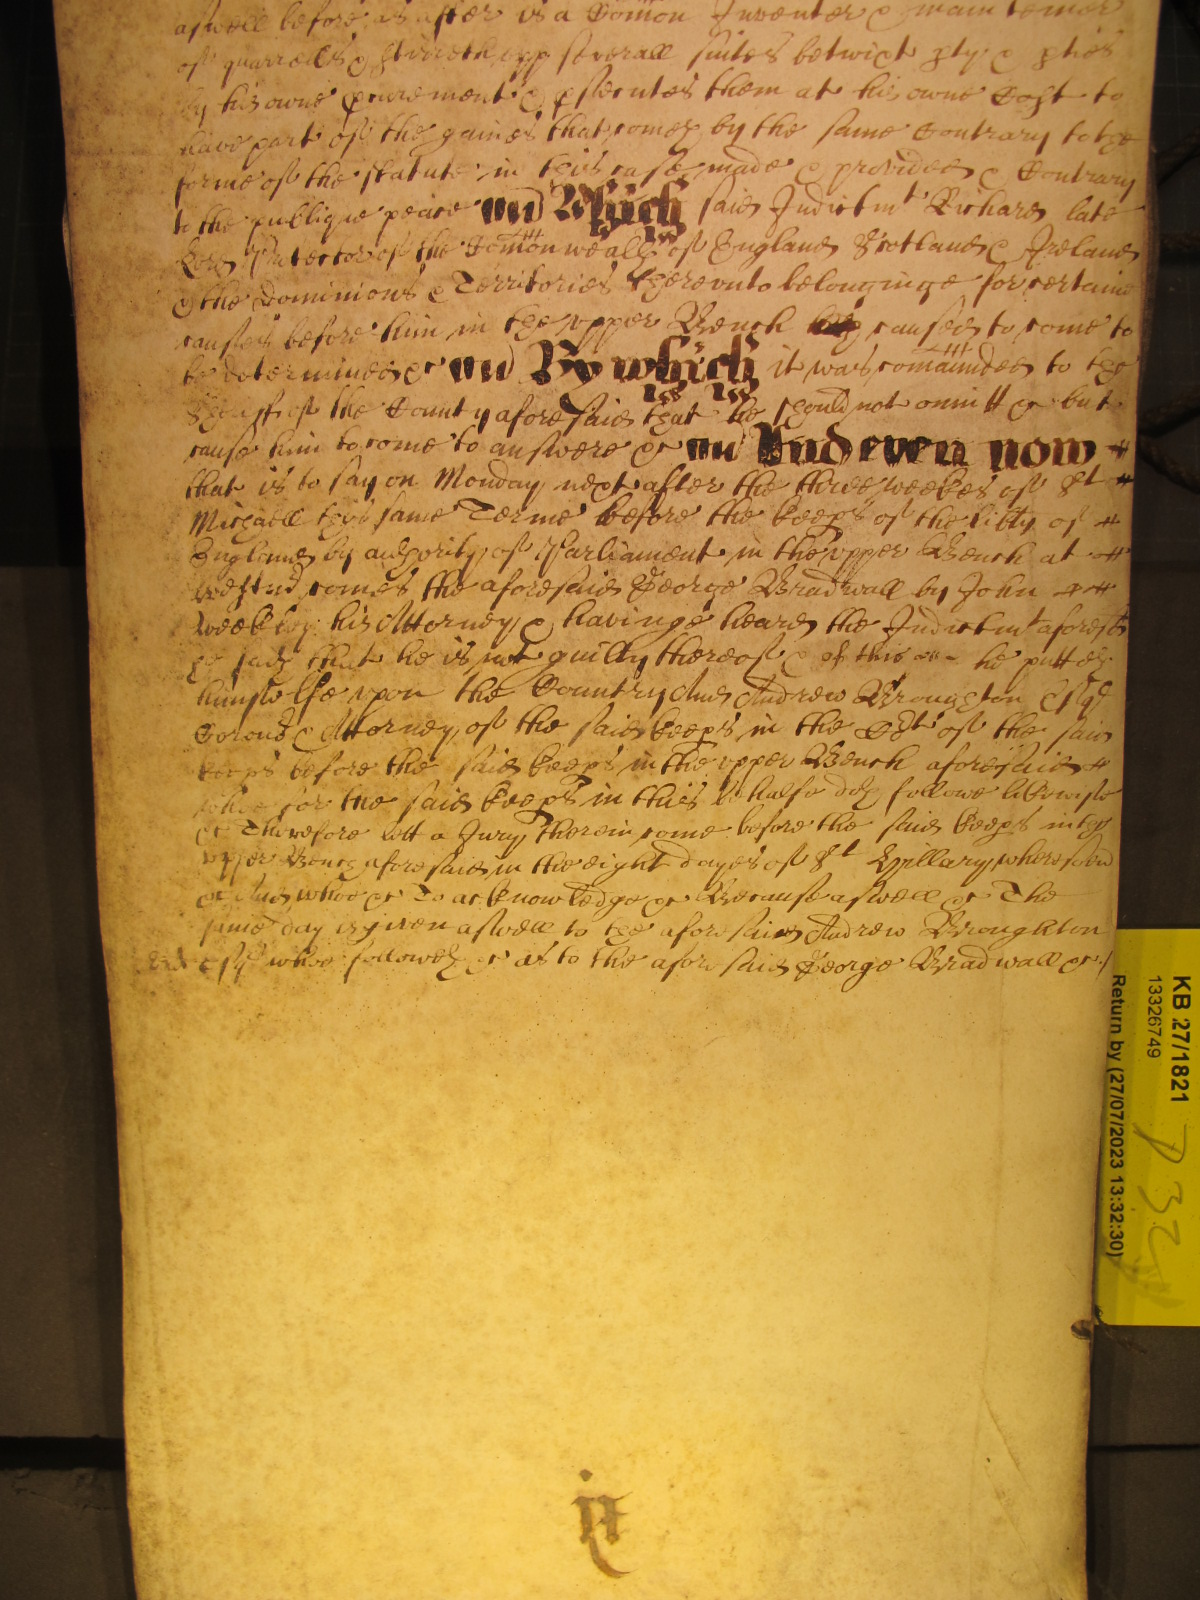 aswell before as after is a Com̄on Inventer & maintainer
of quarrells & stirreth upp severall suites betwixt pty & pties
by his owne pcurement & psecutes them at his owne Cost to
have part of the gaines that comeȝ by the same Contrary to the
forme of the statute in this case made & provided & Contrary
to the publique peace Which said Indictmt Richard late
Lord Protector of the Com̄onwealth of England Scotland & Ireland
& the Dominions & Territories thereunto belonginge for certaine
causes before him in the upper Bench caused to come to
be determined &c By which it was com̄aunded to the
Sheriff of the County aforesaid that he should not omitt &c but
cause him to come to answere &c And even now
that is to say on Monday next after the three weekes of St
Michaell this same Terme before the keeps of the libty of
England by authority of Parliament in the upper Bench at
Westmr comes the aforesaid George Bradwall by John
Weekley his Attorney & havinge heard the Indictmt aforesd
he saith that he is not guilty thereof & of this he putteth
himselfe upon the Country And Andrew Broughton Esqr
Coronr & Attorney of the said keeps in the Crt of the said
keeps before the said keeps in the upper Bench aforesaid
whoe for the said keeps in this behalfe doth followe likewise
&c Therefore lett a Jury therein come before the said keeps in the
upper Bench aforesaid in the eight dayes of St Hillary wheresoevr
&c And whoe &c To acknowledge &c Because aswell &c The
same day is given aswell to the aforesaid Andrew Broughton
Esqr whoe followeth &c as to the aforesaid George Bradwall &c
KB 27/1821
13326749
Return by (27/07/2023 13:32:30)
P 32